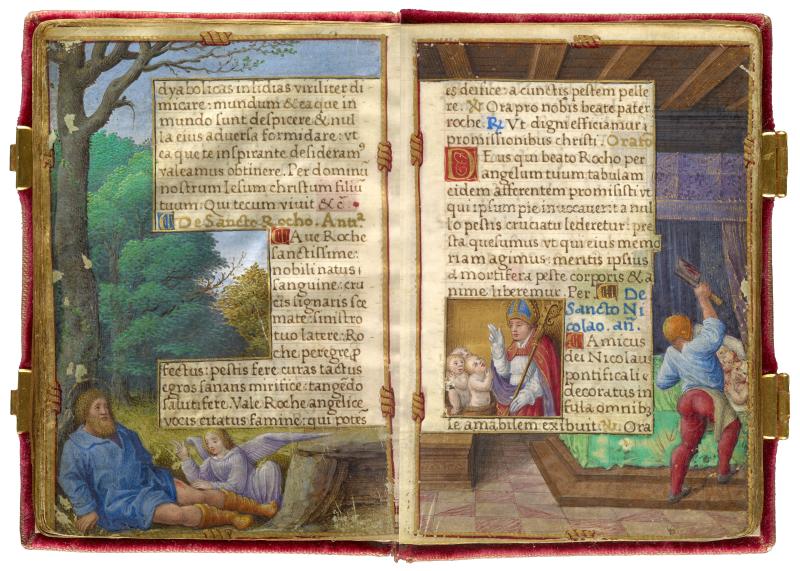 dyabolicas insidias viriliter di
micare: mundum & ea que in
mundo sunt despicere & nul
la eius adversa formidare: vt
ea que te inspirante desideram⁹
valeamus obtinere. Per dominū
nostrum Iesum christum filiū
tuum. Qui tecum vivit & c̄.
De Sancto Rocho. Antᵃ
Aue Roche
sanctissime:
nobili natus
sanguine: cru
cis signaris sce
mate: sinistro
tuo latere: Ro
che peregre, p
fectus: pestis fere curas tactus
egros sanans mirifice: tangēdo
salutifere. Vale Roche angelice
vocis citatus famine: qui potēs
es deifice: a cunctis pestem pelle
re: ℣ Ora pro nobis beate pater
roche ℟ Vt digni efficiamur
promissionibus christi. Oratō
DEus qui beato Rocho per
angelum tuum tabulam
eidem afferentem promisisti vt
qui ipsum pie inuocauerit a nul
lo pestis cruciatu lederetur: pre
sta quesumus vt qui eius memo
riam agimus: meritis ipsius
a mortifera peste corporis & a
nime liberemur. Per
De
Sancto Ni
colao. añ.
Amicus
dei Nicolaus
pontificali
decoratus in
fula omnib
se amabilem exibuit ℣. Ora